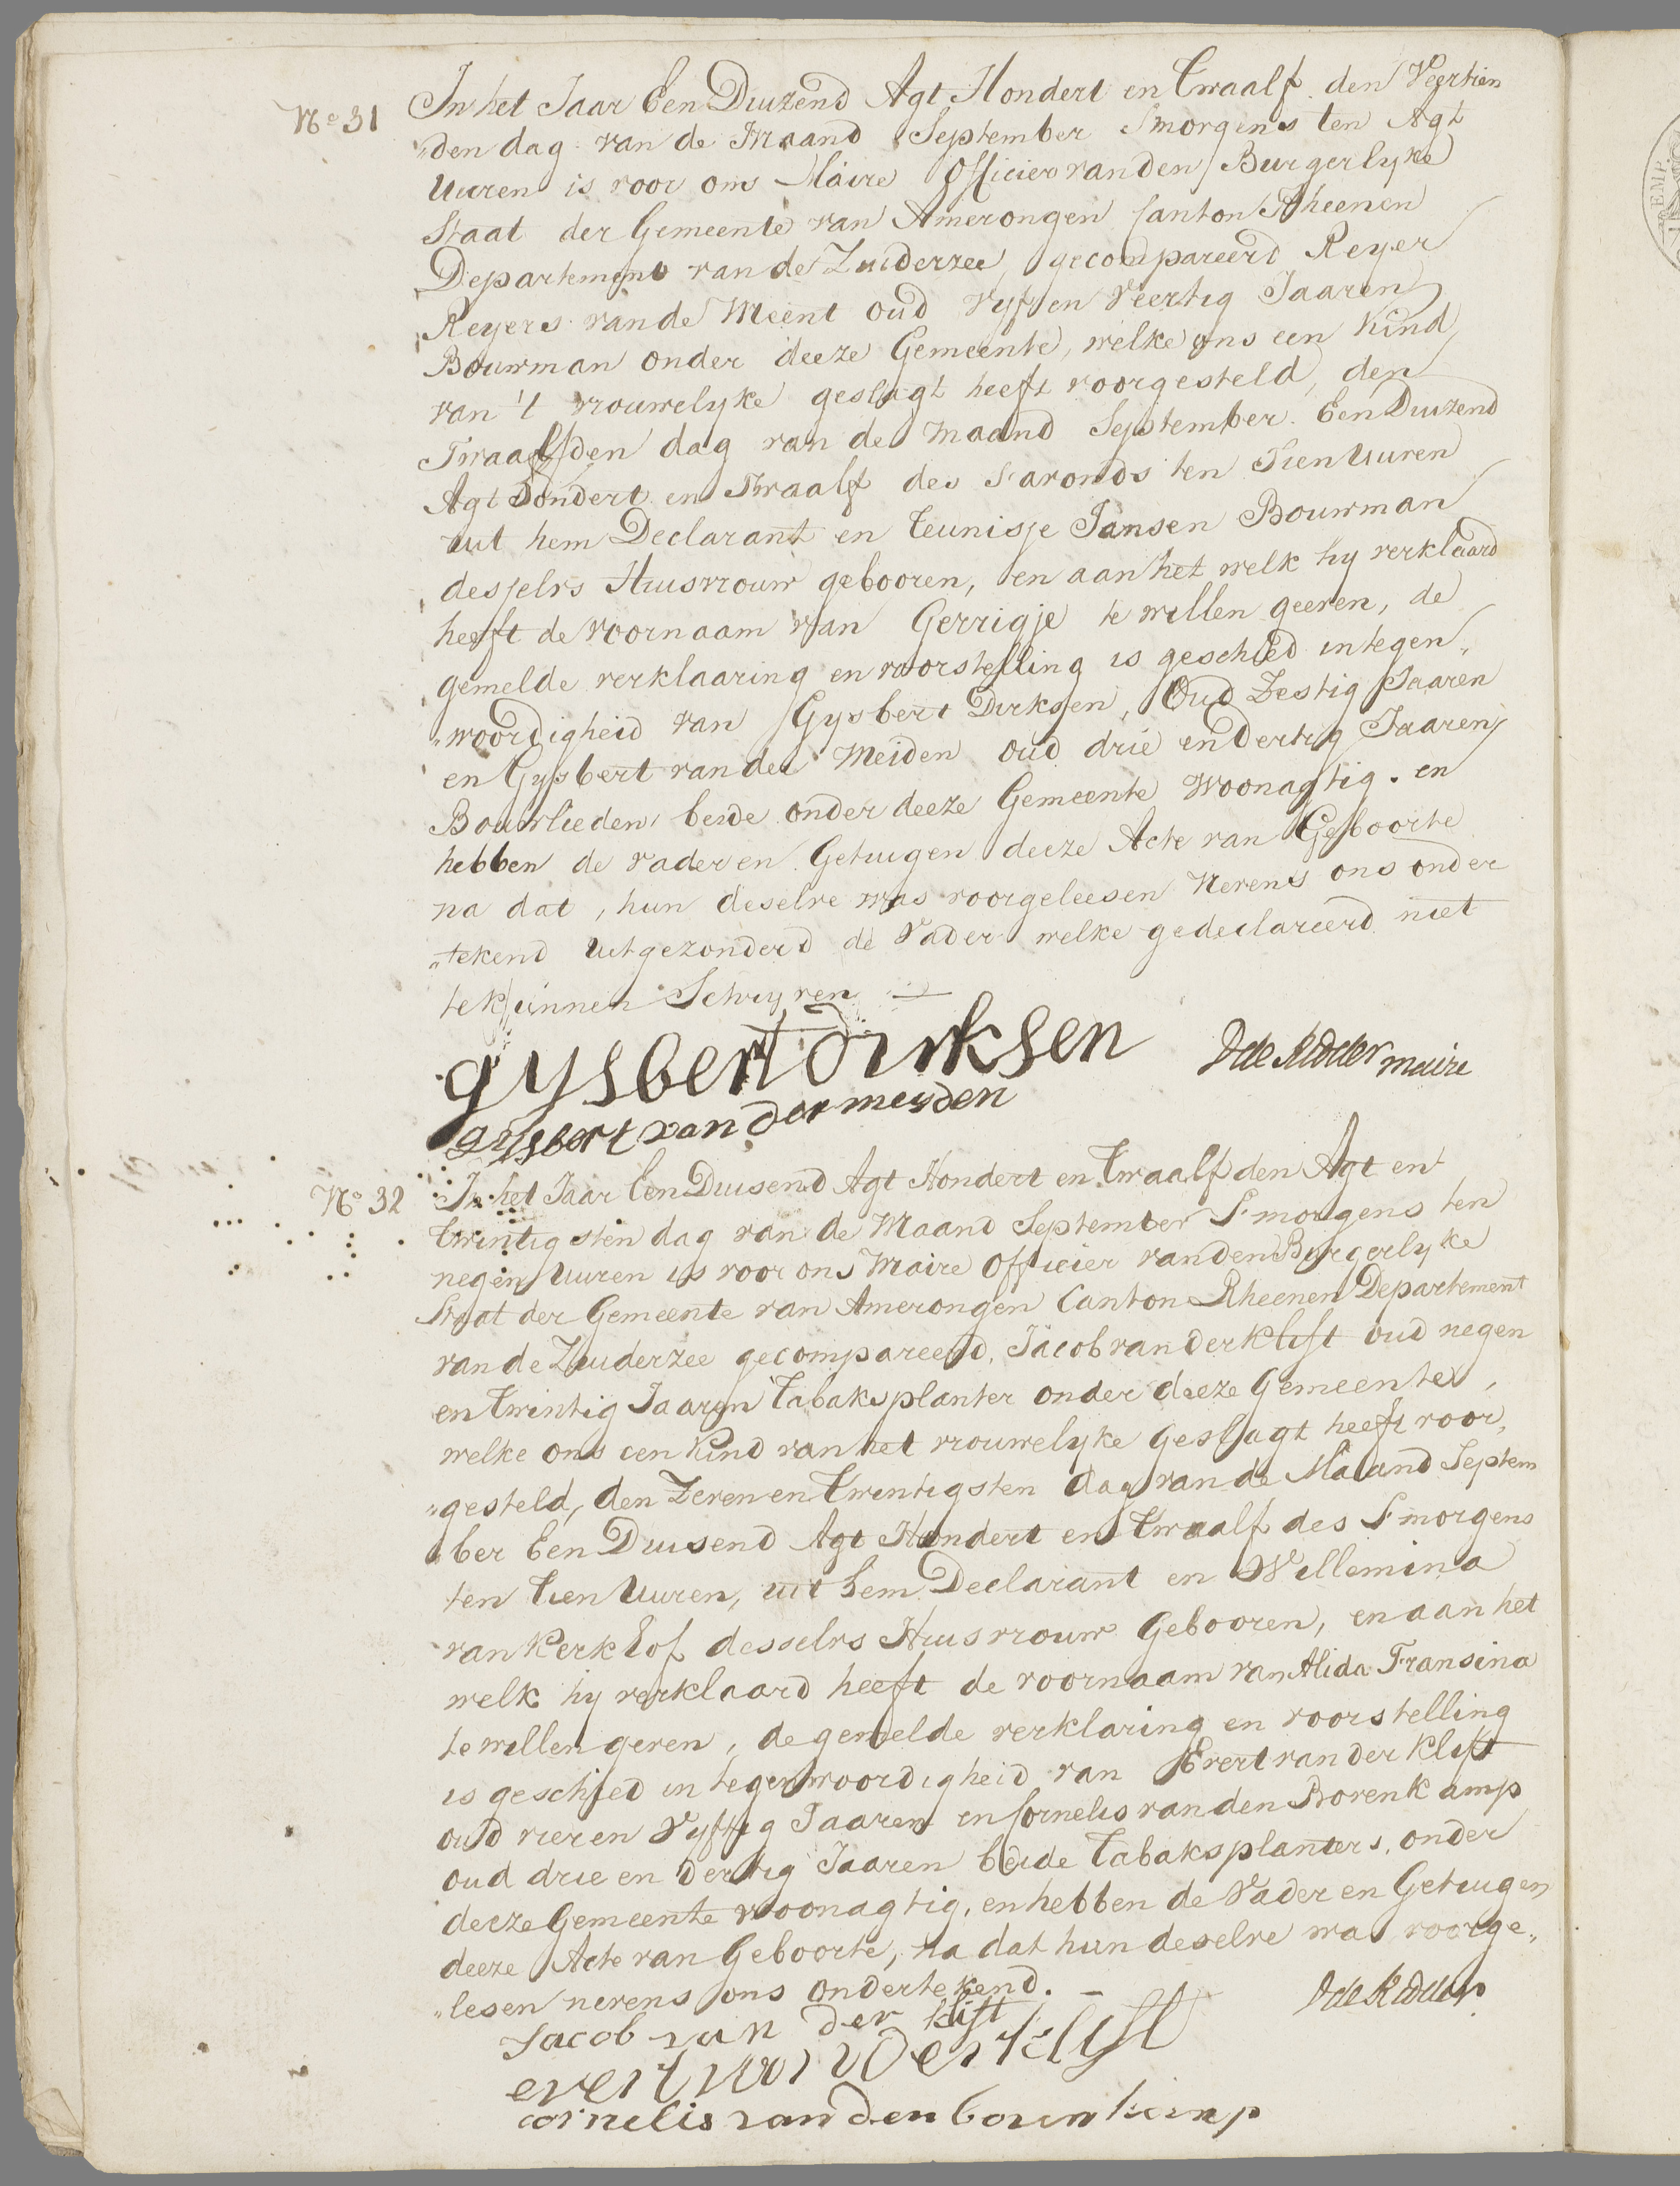 N<sup>o</sup> 31
In het Jaar Een Duizend Agt Hondert en Twaalf den Veertien
„den dag van de Maand September Smorgens ten Agt
Uuren is voor ons Maire Officier van den Burgerlyke
Staat der Gemeente van Amerongen Canton Rheenen
Departement van de Zuiderzee gecompareerd Reyer
Reyers van de Meent oud Vyf en Veertig Jaaren
Bouwman onder deeze Gemeente, welke ons een Kind
van 't vrouwelyke geslagt heeft voorgesteld, den
Twaalfden dag van de Maand September Een Duizend
Agt Hondert en Twaalf des Savonds ten Tien Uuren
uit hem Declarant en Teunisje Jansen Bouwman
desselvs Huisvrouw gebooren, en aan het welk hy verklaard
heeft de voornaam van Gerrigje te willen geeven, de
gemelde verklaaring en voorstelling is geschied in tegen„
„woordigheid van Gysbert Dirksen, Oud Zestig Jaaren
en Gysbert van der Meiden oud drie en Dertig Jaaren
Bouwlieden, beide onder deeze Gemeente Woonagtig. en
hebben de vader en Getuigen deeze Acte van Geboorte
na dat, hun deselve was voorgeleesen Nevens ons onder
„tekend uitgezonderd de Vader welke gedeclareerd niet
te kunnen Schryven
gysbert dirksen
D de Ridder maire
gysbert van der meyden
N<sup>o</sup> 32
In het Jaar Een Duisend Agt Hondert en Twaalf den Agt en
twintigsten dag van de Maand September Smorgens ten
negen Uuren is voor ons Maire Officier van den Burgerlyke
Staat der Gemeente van Amerongen Canton Rheenen Departement
van de Zuiderzee gecompareerd, Jacob van der Klift oud negen
en twintig Jaaren Tabaksplanter onder deeze Gemeente,
welke ons een Kind van het vrouwelyke Geslagt heeft voor„
„gesteld, den Zeven en Twintigsten dag van de Maand Septem
„ber Een Duisend Agt Hondert en Twaalf des Smorgens
ten tien Uuren, uit hem Declarant en Willemina
van Kerkhof desselvs Huisvrouw Gebooren, en aan het
welk hy verklaard heeft de voornaam van Alida Fransina
te willen geven, de gemelde verklaring en voorstelling
is geschied in tegenwoordigheid van Evert van der Klift
oud vier en Vyftig Jaaren en Cornelis van den Bovenkamp
oud drie en dertig Jaaren beide Tabaksplanters, onder
deeze Gemeente woonagtig, en hebben de Vader en Getuigen
deeze Acte van Geboorte, na dat hun deselve was voorge„
„lesen nevens ons ondertekend. –
D de Ridder
Jacob van der klift
evert van der klift
cornelis van den bovenkamp